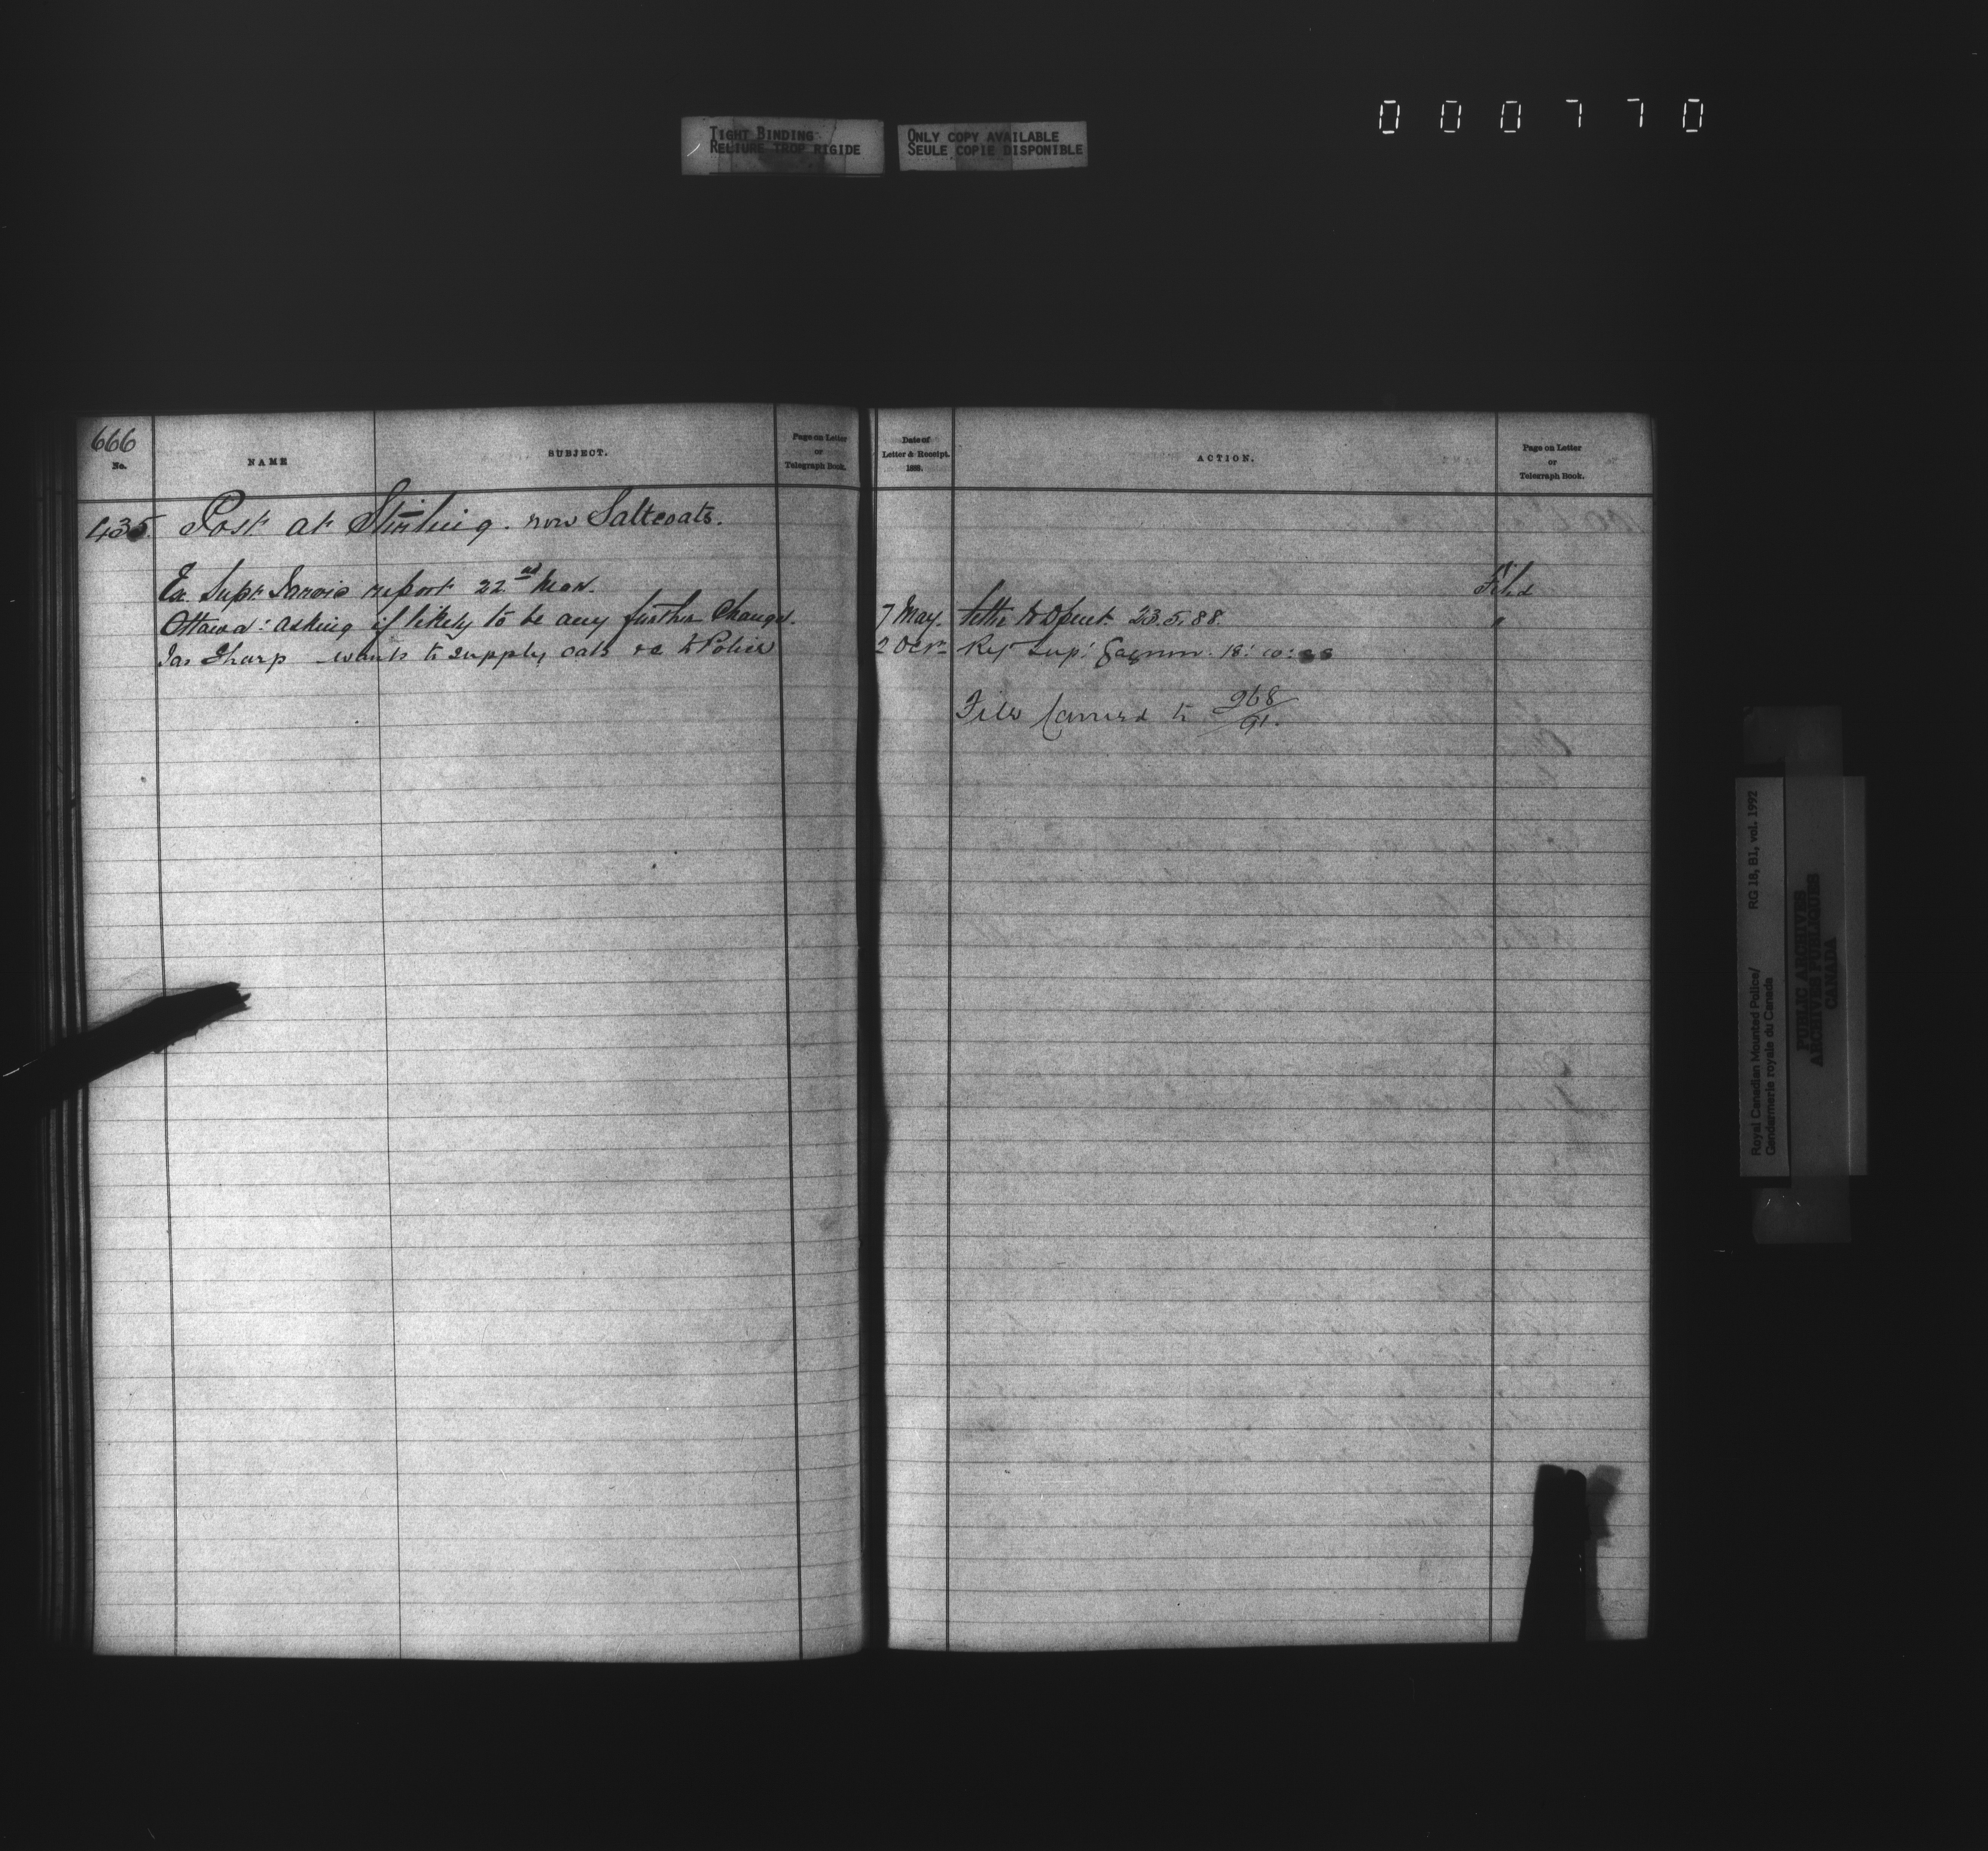 000770
TIGHT BINDING
RELIURE TROP RIGIDE
ONLY COPY AVAILABLE
SEULE COPIE DISPONIBLE
666
No.
NAME
SUBJECT.
Page on Letter
or
Telegraph Book.
435. Post at Stirling. now Saltcoats.
Ex. Supt Jarvis report 22nd Mar.
Ottawa: asking if likely to be any further Change.
Jas Sharp - wants to supply oats &c to Police
Date of
Letter & Receipt.
1888.
ACTION.
Page on Letter
or
Telegraph Book.
Filed
7 May. letter to Dpmt. 23.5.88. "
2 Octr Ref Supt Gagnon. 18:10:88
File Carried to 968/91.
Royal Canadian Mounted Police/ RG 18, B1, vol. 1992
Gendarmerie royale du Canada
PUBLIC ARCHIVES
ARCHIVES PUBLIQUES
CANADA